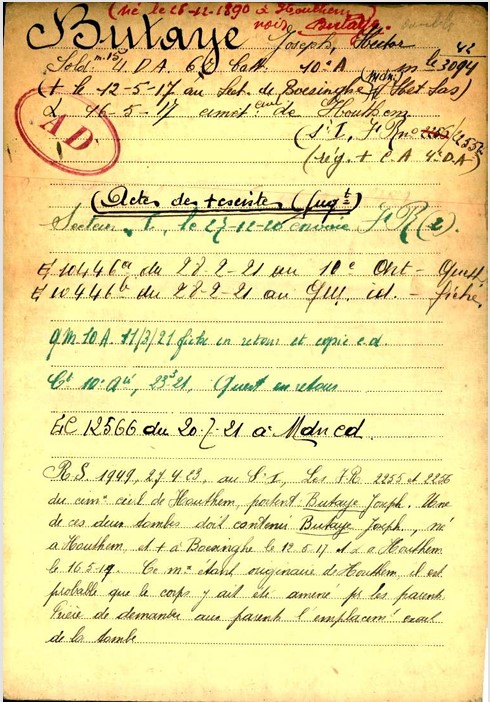 (né le 26-12-1890 à Houthem)
voir Butaye
Butaye Joseph, Hector
Sold. m.les 4 D A. 66 Batt 10e A m le 3094
(+ le 12-5-17 au Sect. de Boesinghe (Mdn) (Het Sas)
16-5-17 cimet. civil de Houthem
(S.I, F R no 2257
(rég. + C A 4e D.A)
AD
(Actes des + (
Secteur I, le 27-12-20 envoie F R (2).
E 10446a du 28-2-21 au 10e Art - Quest
E 10446b du 28-2-21 au QM. id. - fiche
QM 10 A. 11/3/21 fiche en retour et copie c.d
Ct 10e Aie, 23 3 21, Quest en retour
EC 12566 du 20-7-21 à Mdn cd.
RS 1949, 27 4 23, au S.I, Les FR 2255 et 2256
du cimre civil de Houthem, portent Butaye Joseph. Une
de ces deux tombes doit contenir Butaye Joseph, né
à Houthem, et + à Boesinghe le 12 5 17 et à Houthem
le 16.5.17. Ce mre étant originaire de Houthem, il est
probable que le corps y ait été amené pr les parents.
Prière de demander aux parents l'emplacemt exact
de la tombe